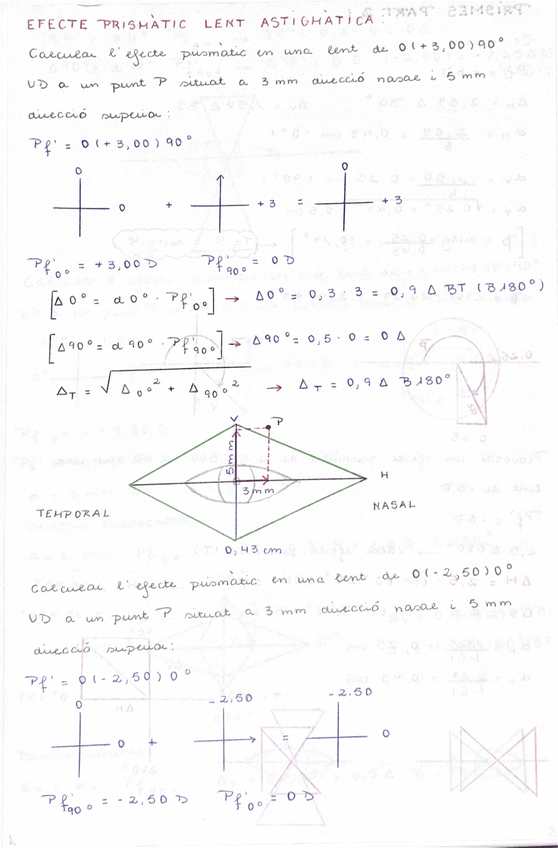 EFECTE PRISMÀTIC LENT ASTIGMÀTICA
Calcular l'efecte prismàtic en una lent de 0(+3,00)90°
UD a un punt P situat a 3 mm direcció nasal i 5 mm
direcció superior:
Pf' = 0(+3,00)90°
0 0 + +3 = 0 +3
Pf'0° = +3,00 D Pf'90° = 0 D
[Δ0° = d0° · Pf'0°] → Δ0° = 0,3 · 3 = 0,9 Δ BT (B180°)
[Δ90° = d90° · Pf'90°] → Δ90° = 0,5 · 0 = 0 Δ
ΔT = √Δ0°² + Δ90°² → ΔT = 0,9 Δ B180°
V P
5 mm
H
3 mm
TEMPORAL NASAL
0,43 cm
Calcular l'efecte prismàtic en una lent de 0(-2,50)0°
UD a un punt P situat a 3 mm direcció nasal i 5 mm
direcció superior:
Pf' = 0(-2,50)0°
0 -2,50 -2,50
0 + = 0
Pf'90° = -2,50 D Pf'0° = 0 D